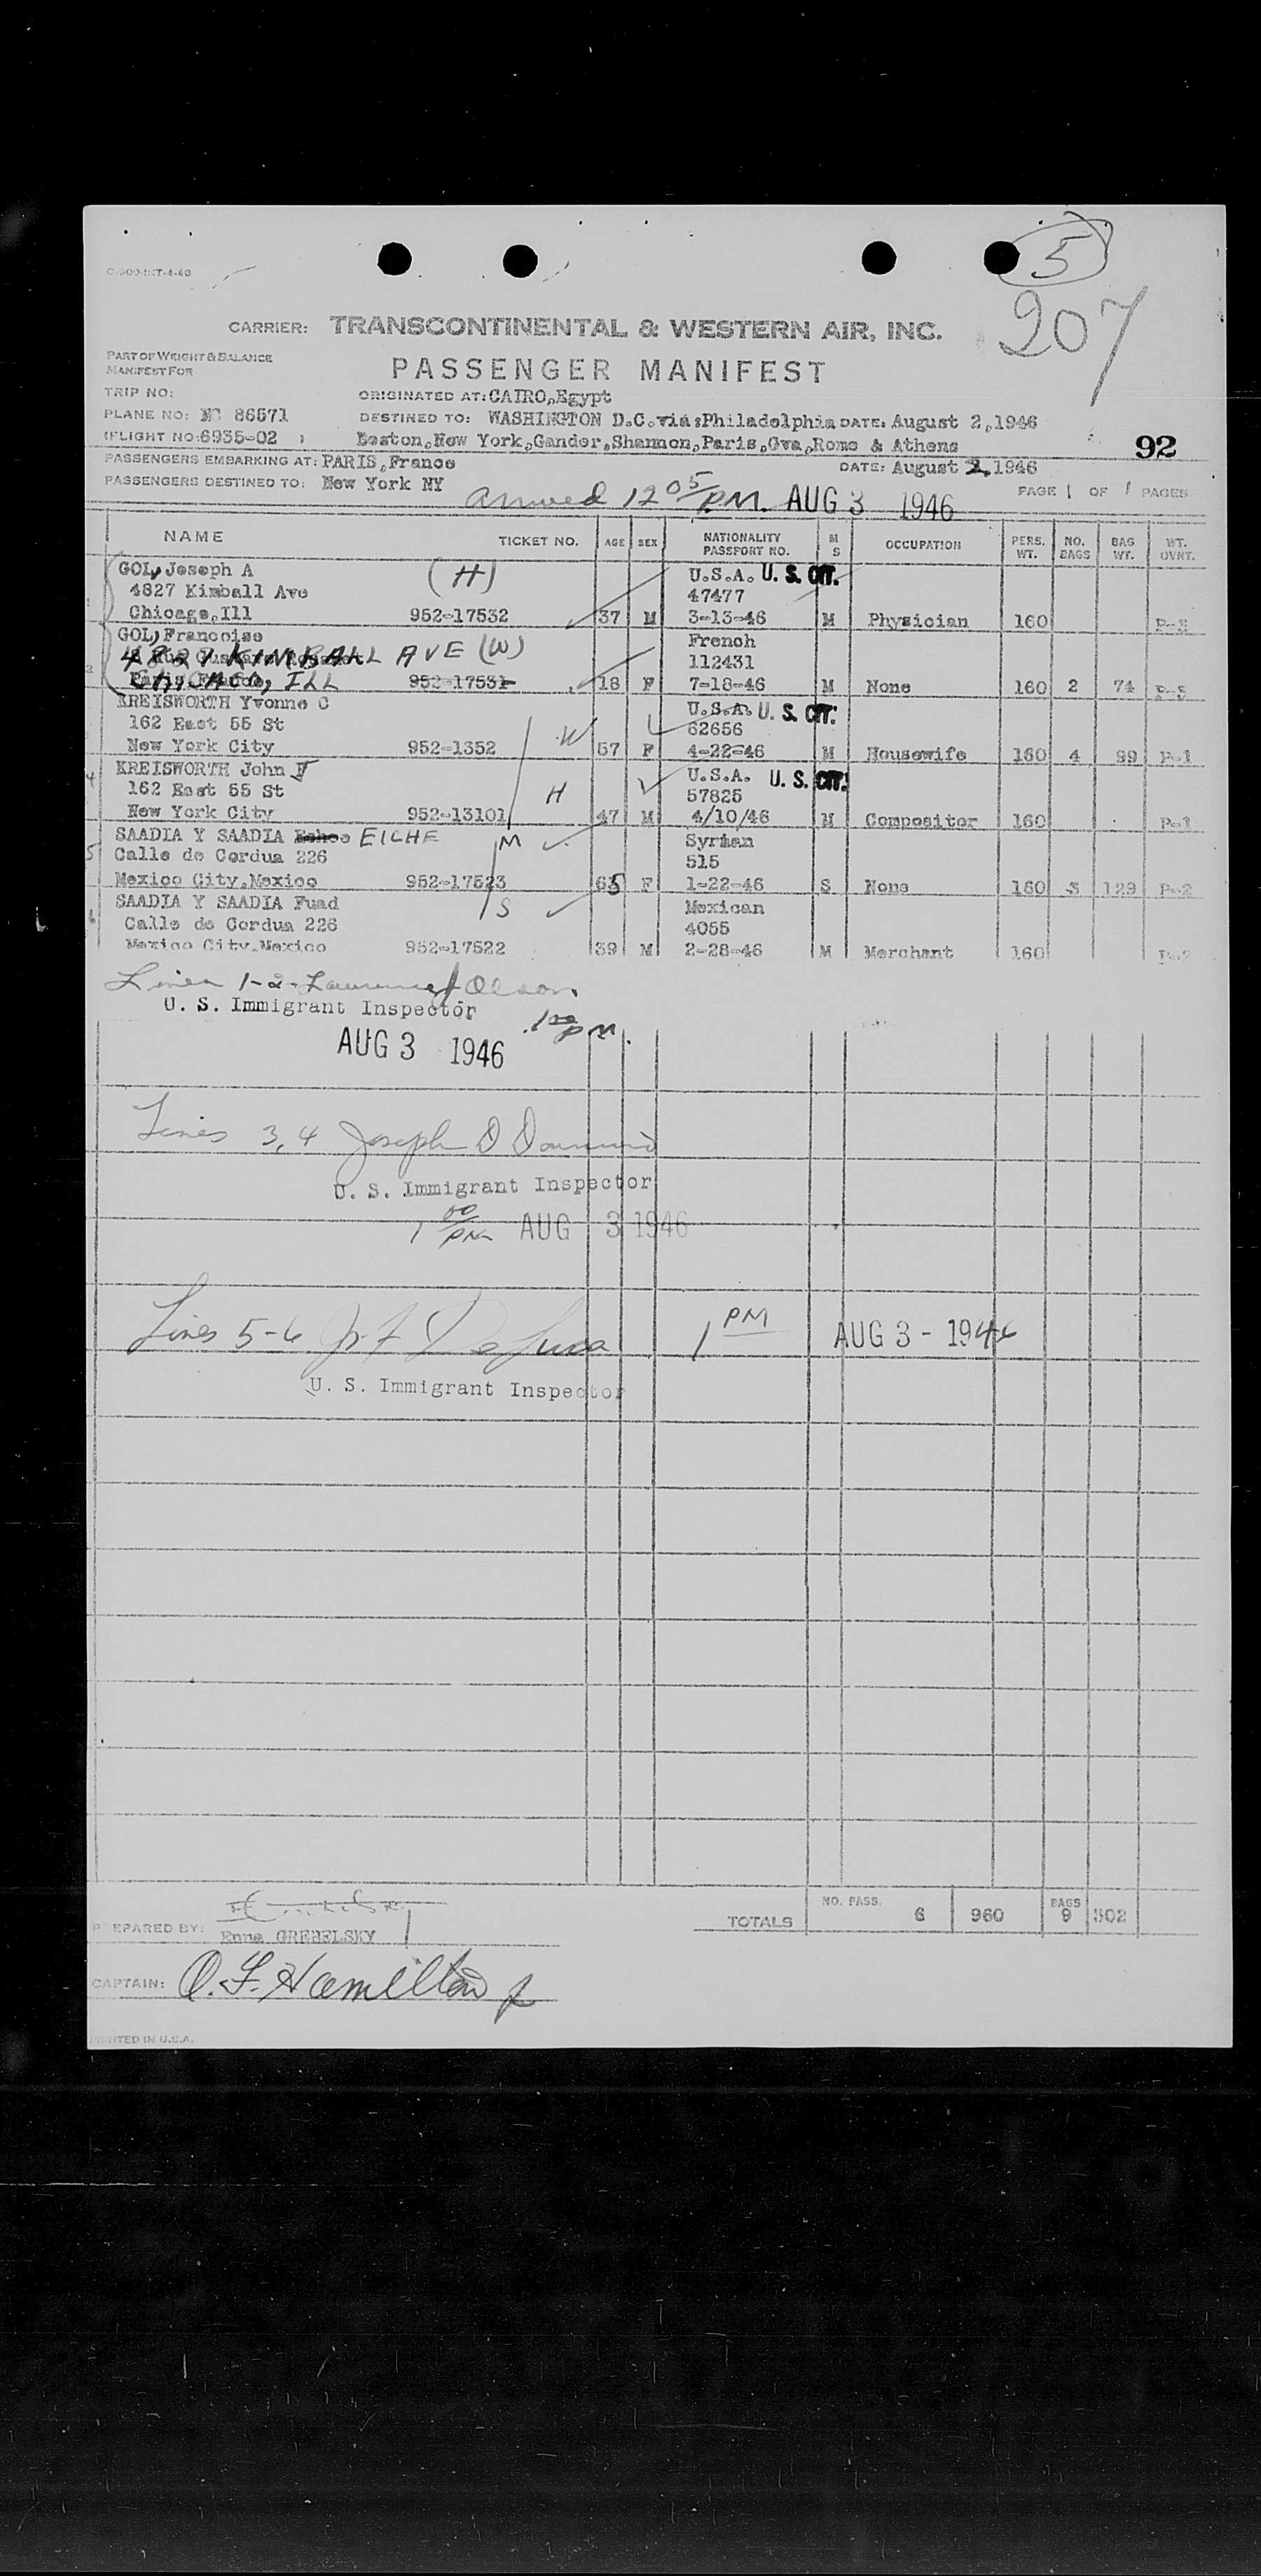 5
207
CARRIER: TRANSCONTINENTAL & WESTERN AIR, INC.
PART OF WEIGHT & BALANCE
MANIFEST FOR
PASSENGER MANIFEST
TRIP NO: ORIGINATED AT: CAIRO,Egypt
PLANE NO: NC 86571 DESTINED TO: WASHINGTON D.C.via:Philadelphia DATE: August 2,1946
(FLIGHT NO:6935-02 ) Boston,New York,Gander,Shannon,Paris,Gva,Rome & Athens 92
PASSENGERS EMBARKING AT: PARIS,France DATE: August 2,1946
PASSENGERS DESTINED TO: New York NY PAGE 1 OF 1 PAGES
arrived 12 05 PM. AUG 3 1946
NAME TICKET NO. AGE SEX NATIONALITY PASSPORT NO. M S OCCUPATION PERS. WT. NO. BAGS BAG WT. WT. OVNT.
GOL, Joseph A (H) U.S.A. U. S. CIT.
4827 Kimball Ave 47477
1 Chicago,Ill 952-17532 37 M 3-13-46 M Physician 160
GOL, Francoise French
4827 KIMBALL AVE (W) 112431
2 CHICAGO, ILL 952-17531 18 F 7-18-46 M None 160 2 74
KREISWORTH Yvonne C U.S.A. U. S. CIT.
162 East 55 St W 62656
New York City 952-1352 57 F 4-22-46 M Housewife 160 4 99 P-1
KREISWORTH John F U.S.A. U. S. CIT.
4 162 East 55 St H 57825
New York City 952-13101 47 M 4/10/46 M Compositor 160 P-1
SAADIA Y SAADIA EICHE M Syrian
5 Calle de Cordua 226 515
Mexico City,Mexico 952-17523 65 F 1-22-46 S None 160 3 129 P-2
SAADIA Y SAADIA Fuad S Mexican
6 Calle de Cordua 226 4055
Mexico City,Mexico 952-17522 39 M 2-28-46 M Merchant 160 P-2
Lines 1-2- Olson
U. S. Immigrant Inspector
1 00 PM.
AUG 3 1946
Lines 3, 4 Joseph D
U. S. Immigrant Inspector
1 00 PM AUG 3 1946
Lines 5-6 1 PM AUG 3 - 1946
U. S. Immigrant Inspector
TOTALS NO. PASS. 6 960 BAGS 9 302
PREPARED BY: Enna GREBELSKY
CAPTAIN: O.F. Hamilton Jr
PRINTED IN U.S.A.